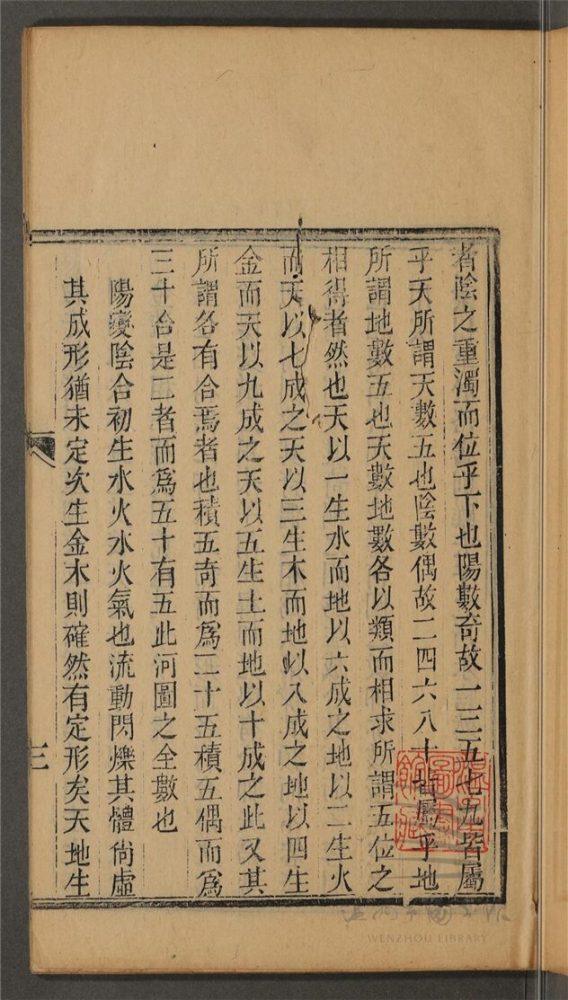 者陰之重濁而位乎下也陽數奇故一三五七九皆屬
乎天所謂天數五也陰數偶故二四六八十皆屬乎地
所謂地數五也天數地數各以類而相求所謂五位之
相得者然也天以一生水而地以六成之地以二生火
而天以七成之天以三生木而地以八成之地以四生
金而天以九成之天以五生土而地以十成之此又其
所謂各有合焉者也積五奇而爲二十五積五偶而爲
三十合是二者而爲五十有五此河圖之全數也
陽變陰合初生水火水火氣也流動閃爍其體尙虛
其成形猶未定次生金木則確然有定形矣天地生
三
WENZHOU LIBRARY